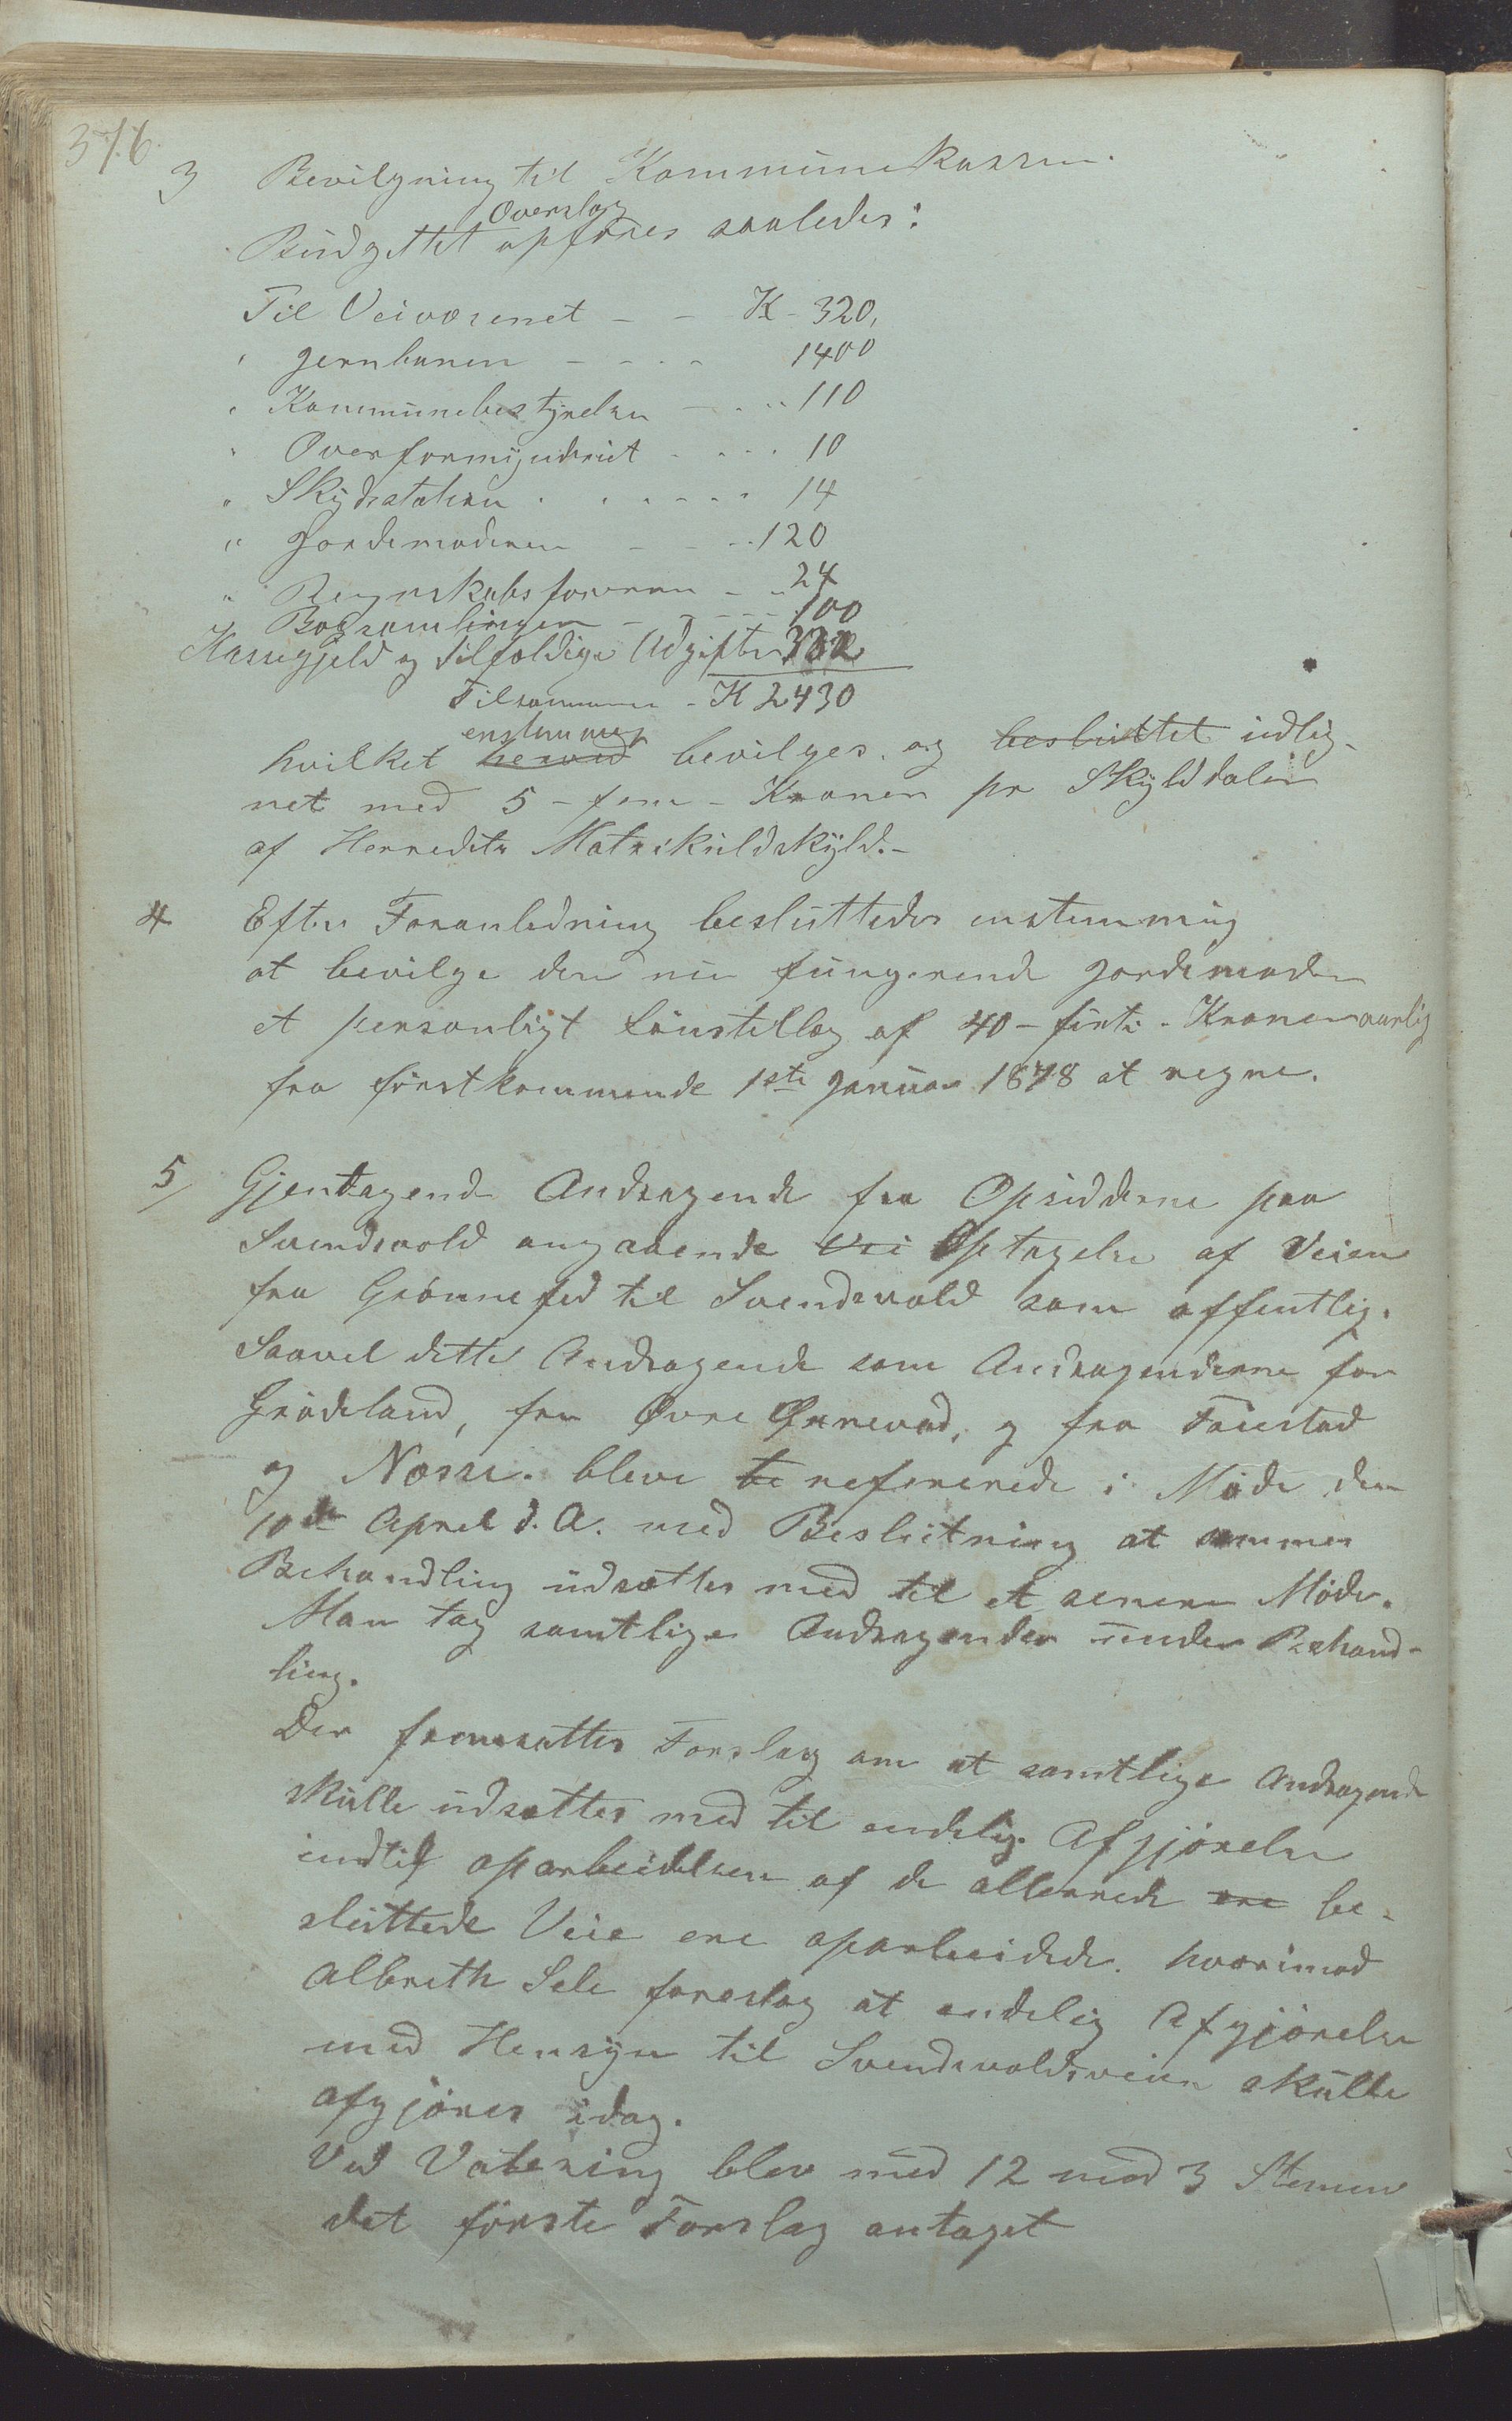 376.
3 Bevilgning til Kommunekassen.
Overslag
Budgettet opföres saaledes:
Til Veivæsenet - - K - 320,
" Jernbanen - - - - 1400
" Kommunebestyrelsen - - .. 110
" Overformynderiet - - - - 10
" Skydsstatsen . . . - - - 14
" Jordemoderen - - - .. 120
" Regnskabsföreren - .. 24
Bogsamlingen - - - - - 100
Kassegjeld og tilfældige Udgifter 332
Tilsammen - K 2430
enstemmig
hvilket herved bevilges. og besluttet udlig-
net med 5 - fem - Kroner pr Skylddaler
af Herredets Matrikulskyld.-
4 Efter Foranledning besluttedes enstemmig
at bevilge den nu fungerende Jordemoder
et personligt Lönstillæg af 40 - firti - Kroner aarlig
fra förstkommende 1ste Januar 1878 at regne.
5/ Gjentagende Andragende fra Opsidderne paa
Svendsvold angaaende Vei Optagelse af Veien
fra Grönnefed til Svendsvold som offentlig.
Saavel dette Andragende som Andragenderne for
Grödeland, fra Øvre Ørnevad, og fra Tøiestad
og Næsse. bleve be refererede i Møde den
10de April d. A. med Beslutning at sammes
Behandling udsættes med til et senere Möde.
Man tog samtlige Andragender under Behand-
ling.
Der fremsattes Forslag om at samtlige Andragende
skulle udsættes med til endelig Afgjörelse
indtil oparbeidelsen af de allerede ere be-
sluttede Veie ere oparbeidede. hvorimod
Albreth Sele foreslog at endelig Afgjörelse
med Hensyn til Svendsvoldsveien skulle
afgjöres idag.
Ved Votering blev med 12 mod 3 Stemmer
det förste Forslag antaget